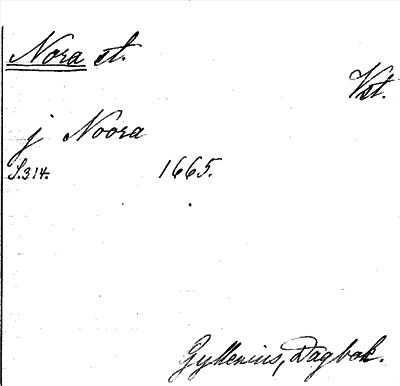 Nora st.
Vst.
j Noora
S. 314. 1665.
Gyllenius, Dagbok.